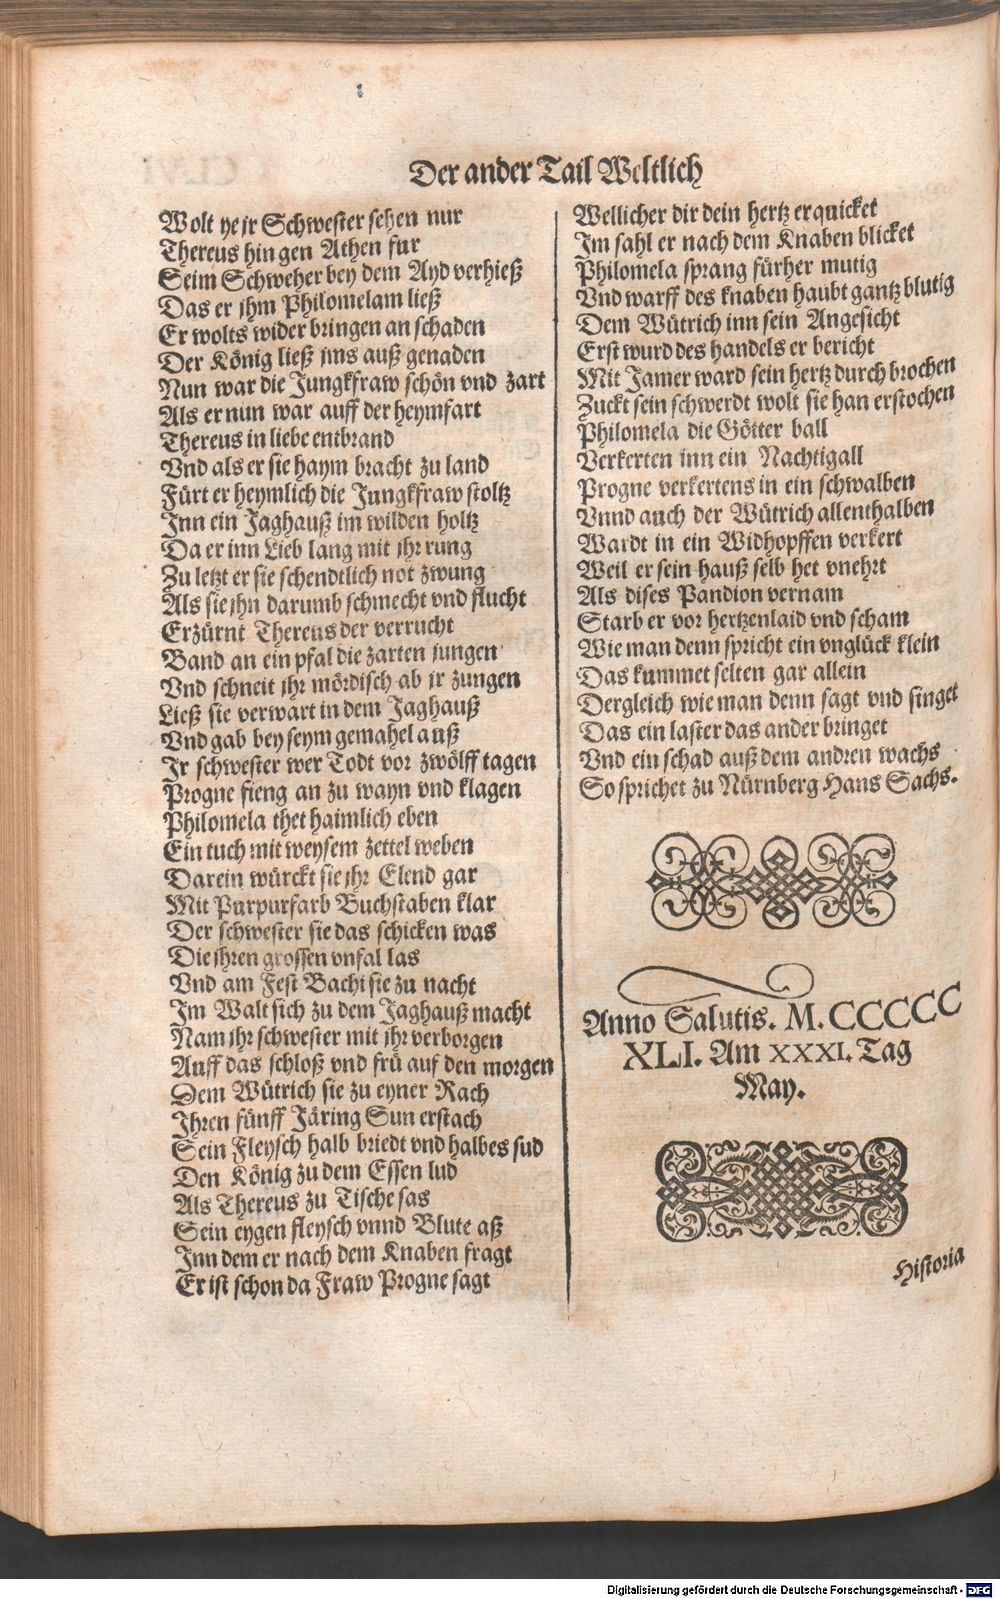 Der ander Tail Weltlich
Wolt ye jr Schwester sehen nur
Thereus hin gen Athen fur
Seim Schweher bey dem Ayd verhieß
Das er jhm Philomelam ließ
Er wolts wider bringen an schaden
Der König ließ jms auß genaden
Nun war die Jungkfraw schön vnd zart
Als er nun war auff der heymfart
Thereus in liebe entbrand
Vnd als er sie haym bracht zu land
Fürt er heymlich die Jungkfraw stoltz
Inn ein Jaghauß im wilden holtz
Da er inn Lieb lang mit jhr rung
Zu letzt er sie schendtlich not zwung
Als sie jhn darumb schmecht vnd flucht
Erzürnt Thereus der verrucht
Band an ein pfal die zarten jungen
Vnd schneit jhr mördisch ab jr zungen
Ließ sie verwart in dem Jaghauß
Vnd gab bey seym gemahel auß
Ir schwester wer Todt vor zwölff tagen
Progne fieng an zu wayn vnd klagen
Philomela thet haimlich eben
Ein tuch mit weysem zettel weben
Darein würckt sie jhr Elend gar
Mit Purpurfarb Buchstaben klar
Der schwester sie das schicken was
Die jhren grossen vnfal las
Vnd am Fest Bachi sie zu nacht
Im Walt sich zu dem Jaghauß macht
Nam jhr schwester mit jhr verborgen
Auff das schloß vnd frü auf den morgen
Dem Wütrich sie zu eyner Rach
Ihren fünff Järing Sun erstach
Sein Fleysch halb briedt vnd halbes sud
Den König zu dem Essen lud
Als Thereus zu Tische sas
Sein eygen fleysch vnnd Blute aß
Inn dem er nach dem Knaben fragt
Er ist schon da Fraw Progne sagt
Wellicher dir dein hertz erquicket
Im sahl er nach dem Knaben blicket
Philomela sprang fürher mutig
Vnd warff des knaben haubt gantz blutig
Dem Wütrich inn sein Angesicht
Erst wurd des handels er bericht
Mit Jamer ward sein hertz durch brochen
Zuckt sein schwerdt wolt sie han erstochen
Philomela die Götter ball
Verkerten inn ein Nachtigall
Progne verkertens in ein schwalben
Vnnd auch der Wütrich allenthalben
Wardt in ein Widhopffen verkert
Weil er sein hauß selb het vnehrt
Als dises Pandion vernam
Starb er vor hertzenlaid vnd scham
Wie man denn spricht ein vnglück klein
Das kummet selten gar allein
Dergleich wie man denn sagt vnd singet
Das ein laster das ander bringet
Vnd ein schad auß dem andren wachs
So sprichet zu Nürnberg Hans Sachs.
Anno Salutis. M. CCCCC
XLI. Am XXXI. Tag
May.
Historia
Digitalisierung gefördert durch die Deutsche Forschungsgemeinschaft - DFG